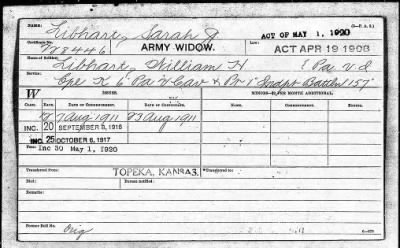 Libhart, Sarah J
ACT OF MAY 1, 1920
ARMY WIDOW.
Certificate No.
78446
LAW: ACT APR 19 1908
Name of Soldier:
Libhart, William H
Service:
Cpl K 6 Pa V Cav & Pr 1"
W
ISSUE.
MINORS—$2 PER MONTH ADDITIONAL.
CLASS.
RATE.
DATE OF COMMENCEMENT.
DATE OF CERTIFICATE.
RATE.
DATE OF COMMENCEMENT.
7 Aug 1911
23 Aug 1911
INC. 20 SEPTEMBER 8, 1916
INC. 25 OCTOBER 6, 1917
Inc 30 May 1, 1920
Transferred from
TOPEKA, KANSAS.
Transferred to:
Died
Bureau notified:
Remarks:
Former Roll No.
Orig